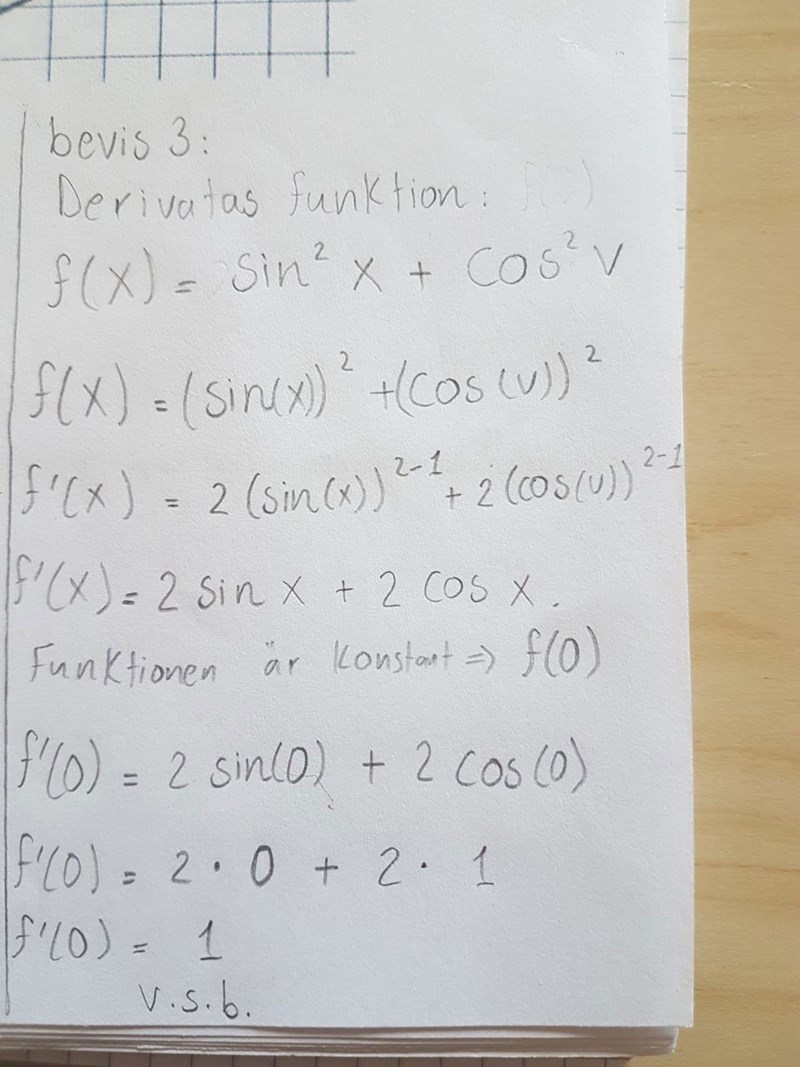 bevis 3:
Derivatas funktion: f( )
f(x) = sin² x + cos² v
f(x) = (sin(x))² + (cos(v))²
f'(x) = 2 (sin(x))²⁻¹ + 2 (cos(v))²⁻¹
f'(x) = 2 sin x + 2 cos x.
Funktionen är konstant ⇒ f(0)
f'(0) = 2 sin(0) + 2 cos(0)
f'(0) = 2 · 0 + 2 · 1
f'(0) = 1
v.s.b.